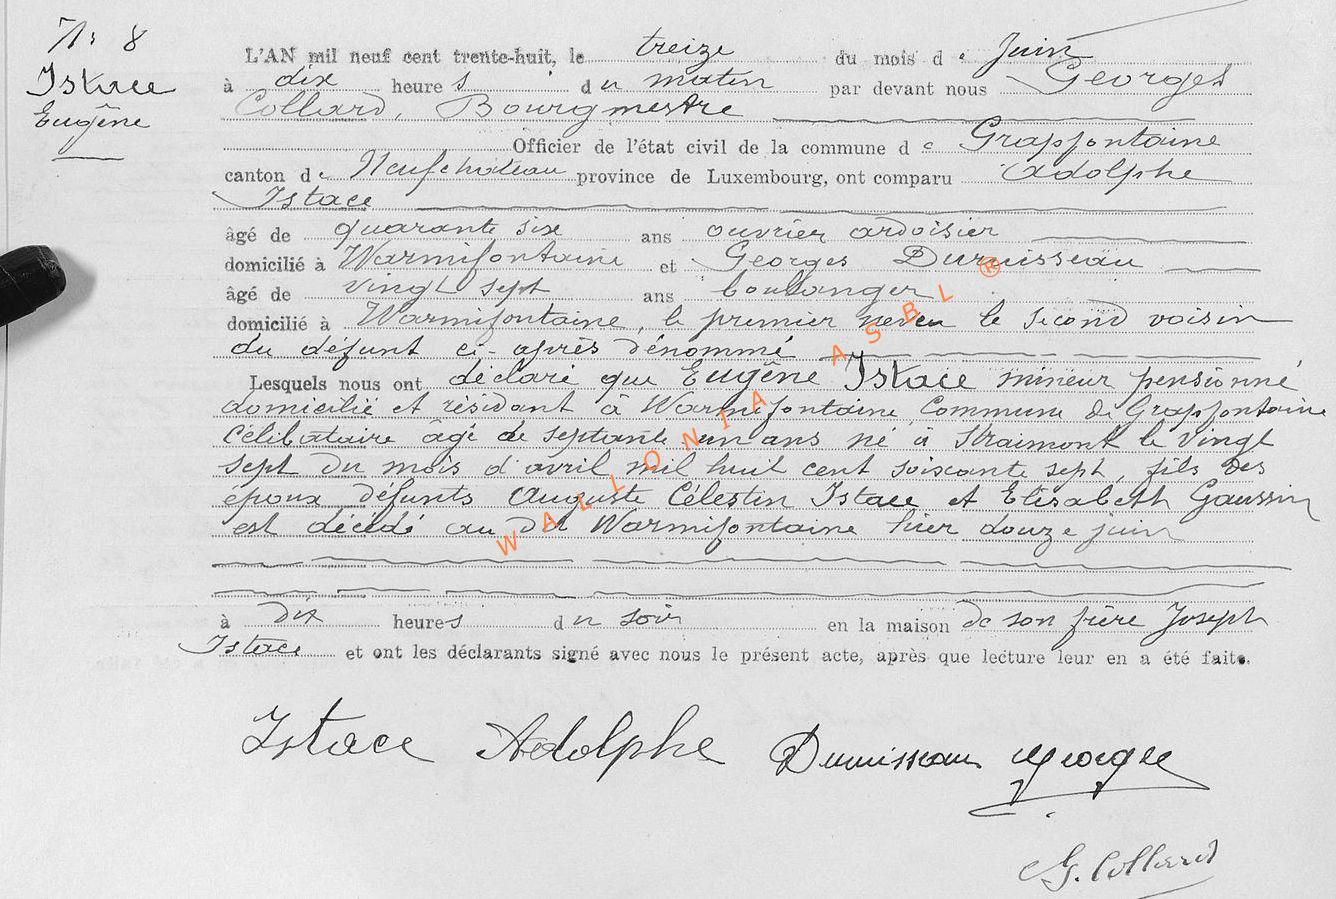 N° 8
Istace
Eugène
L'AN mil neuf cent trente-huit, le treize du mois de Juin
à dix heures du matin par devant nous Georges
Collard, Bourgmestre
Officier de l'état civil de la commune de Grapfontaine
canton de Neufchâteau province de Luxembourg, ont comparu Adolphe
Istace
âgé de quarante six ans ouvrier ardoisier
domicilié à Warmifontaine et Georges Duruisseau
âgé de vingt sept ans boulanger
domicilié à Warmifontaine, le premier neveu le second voisin
du défunt ci-après dénommé
Lesquels nous ont déclaré que Eugène Istace mineur pensionné
domicilié et résidant à Warmifontaine Commune de Grapfontaine
célibataire âgé de septante un ans né à Straimont le vingt
sept du mois d'avril mil huit cent soixante sept, fils des
époux défunts Auguste Célestin Istace et Elisabeth Gaussin
est décédé au dit Warmifontaine hier douze juin
à dix heures du soir en la maison de son frère Joseph
Istace et ont les déclarants signé avec nous le présent acte, après que lecture leur en a été faite.
Istace Adolphe Duruisseau Georges
G. Collard
WALLONIA ASBL ®